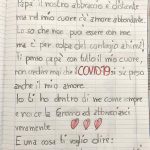 Papà il nostro abbraccio è distante
ma nel mio cuore c'è amore abbondante.
Lo so che non può essere con me
ma è per colpa del contagio ahimè!
Ti penso papà con tutto il mio cuore,
non credere mai che il COVID19 si sia preso
anche il mio amore.
Io ti ho dentro di me come sempre
e non ce la faremo ad abbracciarci
veramente
E una cosa ti voglio dire: